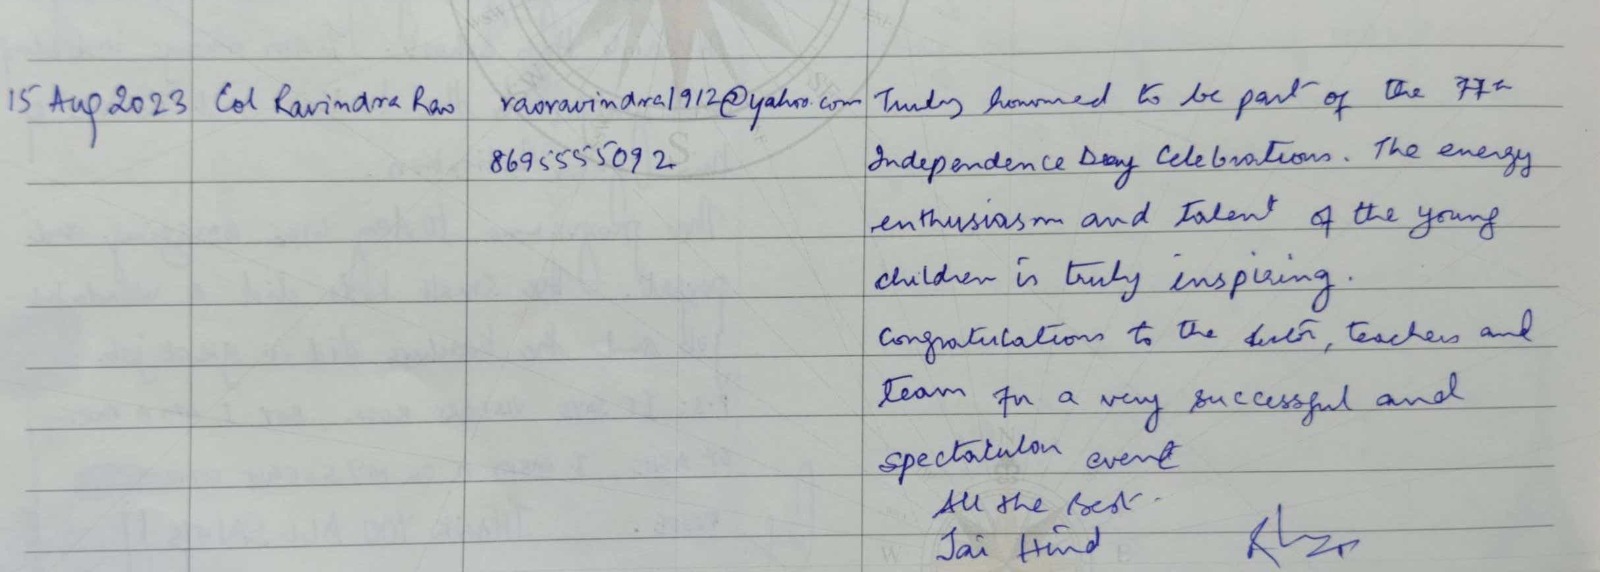 15 Aug 2023 Col Ravindra Rao raoravindra1912@yahoo.com Truly honoured to be part of the 77th
8695555092 Independence Day Celebrations. The energy
enthusiasm and talent of the young
children is truly inspiring.
Congratulations to the , teachers and
team for a very successful and
spectacular event
All the Best.
Jai Hind